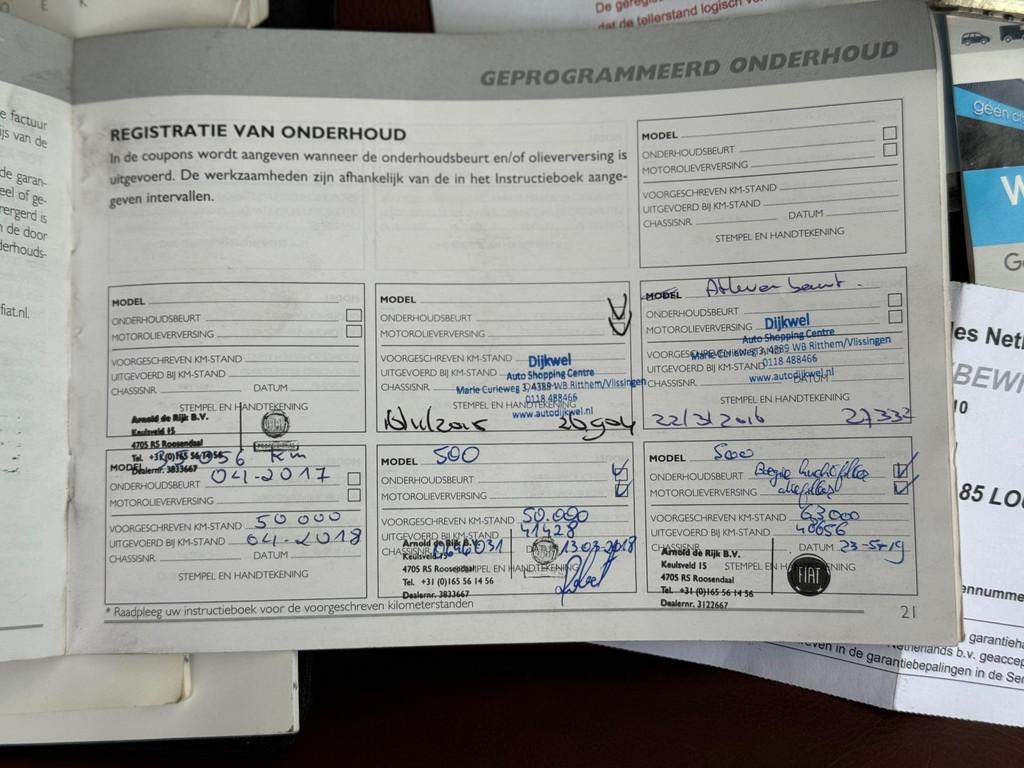 De geregis
dat de tellerstand logisch
GEPROGRAMMEERD ONDERHOUD
REGISTRATIE VAN ONDERHOUD
In de coupons wordt aangeven wanneer de onderhoudsbeurt en/of olieverversing is
uitgevoerd. De werkzaamheden zijn afhankelijk van de in het Instructieboek aange-
geven intervallen.
MODEL
ONDERHOUDSBEURT
MOTOROLIEVERVERSING
VOORGESCHREVEN KM-STAND
UITGEVOERD BIJ KM-STAND
CHASSISNR. DATUM
STEMPEL EN HANDTEKENING
MODEL
ONDERHOUDSBEURT
MOTOROLIEVERVERSING
VOORGESCHREVEN KM-STAND
UITGEVOERD BIJ KM-STAND
CHASSISNR. DATUM
STEMPEL EN HANDTEKENING
Arnold de Rijk B.V.
Keulsveld 15
4705 RS Roosendaal
Tel. +31(0)165 56 14 56
Dealernr. 3833667
MODEL
ONDERHOUDSBEURT
MOTOROLIEVERVERSING
VOORGESCHREVEN KM-STAND
UITGEVOERD BIJ KM-STAND
CHASSISNR.
STEMPEL EN HANDTEKENING
Dijkwel
Auto Shopping Centre
Marie Curieweg 3, 4389 WB Ritthem/Vlissingen
0118 488466
www.autodijkwel.nl
MODEL Afleverbeurt.
ONDERHOUDSBEURT
MOTOROLIEVERVERSING
VOORGESCHREVEN KM-STAND
UITGEVOERD BIJ KM-STAND
CHASSISNR. DATUM
Dijkwel
Auto Shopping Centre
Marie Curieweg 3, 4389 WB Ritthem/Vlissingen
0118 488466
www.autodijkwel.nl
22/3/2016 27332
MODEL Km
ONDERHOUDSBEURT 04-2017
MOTOROLIEVERVERSING
VOORGESCHREVEN KM-STAND 50 000
UITGEVOERD BIJ KM-STAND 04-2018
CHASSISNR. DATUM
STEMPEL EN HANDTEKENING
MODEL 500
ONDERHOUDSBEURT
MOTOROLIEVERVERSING
VOORGESCHREVEN KM-STAND 50.000
UITGEVOERD BIJ KM-STAND 41428
CHASSISNR. DATUM 13-03-2018
STEMPEL EN HANDTEKENING
Arnold de Rijk B.V.
Keulsveld 15
4705 RS Roosendaal
Tel. +31 (0)165 56 14 56
Dealernr. 3833667
MODEL 500
ONDERHOUDSBEURT
MOTOROLIEVERVERSING
VOORGESCHREVEN KM-STAND 63000
UITGEVOERD BIJ KM-STAND 48656
CHASSISNR. DATUM 23-5-19
STEMPEL EN HANDTEKENING
Arnold de Rijk B.V.
Keulsveld 15
4705 RS Roosendaal
Tel. +31 (0)165 56 14 56
Dealernr. 3122667
FIAT
* Raadpleeg uw instructieboek voor de voorgeschreven kilometerstanden
21
e factuur
js van de
de garan-
eel of ge-
rergerd is
n de door
derhouds-
fiat.nl.
geen
W
G
les Net
BEWI
10
85 LO
ennumme
garantieh
Netherlands b.v. geaccep
even in de garantiebepalingen in de Ser